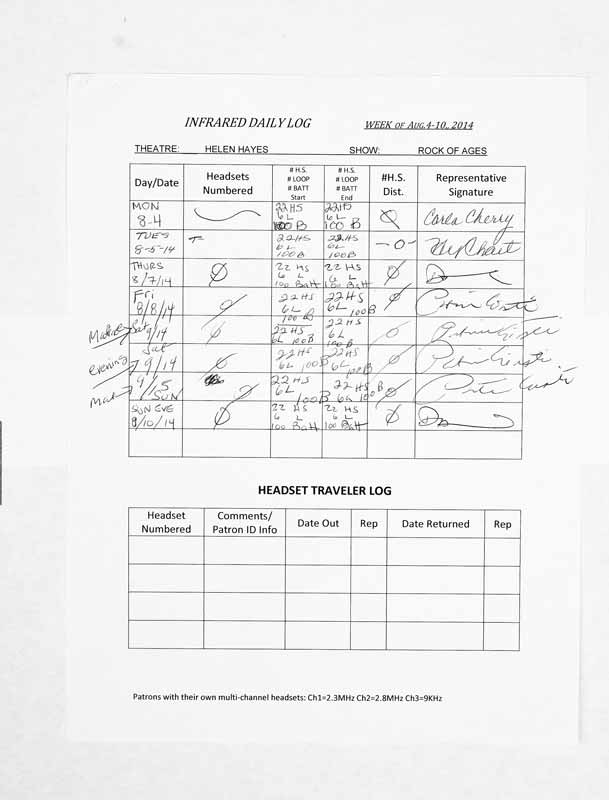 INFRARED DAILY LOG WEEK OF AUG.4-10, 2014
THEATRE: HELEN HAYES SHOW: ROCK OF AGES
Day/Date Headsets Numbered # H.S. # LOOP # BATT Start # H.S. # LOOP # BATT End #H.S. Dist. Representative Signature
MON 8-4 22 HS 6 L 100 B 22 HS 6 L 100 B Ø Carla Cherry
TUES 8-5-14 22 HS 6L 100B 22HS 6L 100B -0-
THURS 8/7/14 Ø 22 HS 6 L 100 Batt 22 HS 6 L 100 Batt Ø
Fri 8/8/14 Ø 22 HS 6L 100 B 22 HS 6L 100B Ø
Matinee Sat 9/14 Ø 22 HS 6L 100B 22 HS 6 L 100 B Ø
evening Sat 9/14 Ø 22 HS 6L 100B 22 HS 6L 100B Ø
Mat SUN 22 HS 6L 100B 22 HS 6L 100B Ø
SUN EVE 8/10/14 Ø 22 HS 6 L 100 Batt 22 HS 6 L 100 Batt Ø
HEADSET TRAVELER LOG
Headset Numbered Comments/ Patron ID Info Date Out Rep Date Returned Rep
Patrons with their own multi-channel headsets: Ch1=2.3MHz Ch2=2.8MHz Ch3=9KHz